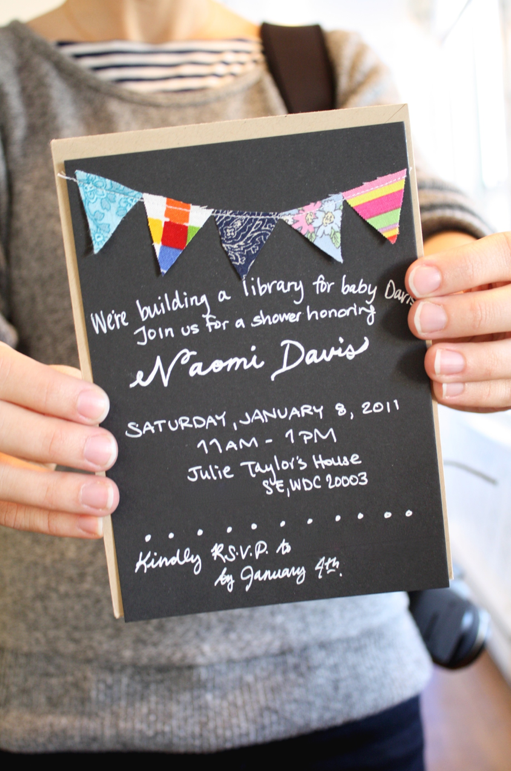 We're building a library for baby Davis
Join us for a shower honoring
Naomi Davis
SATURDAY, JANUARY 8, 2011
11AM - 1PM
Julie Taylor's House
SE, WDC 20003
Kindly R.S.V.P. to
by January 4th.